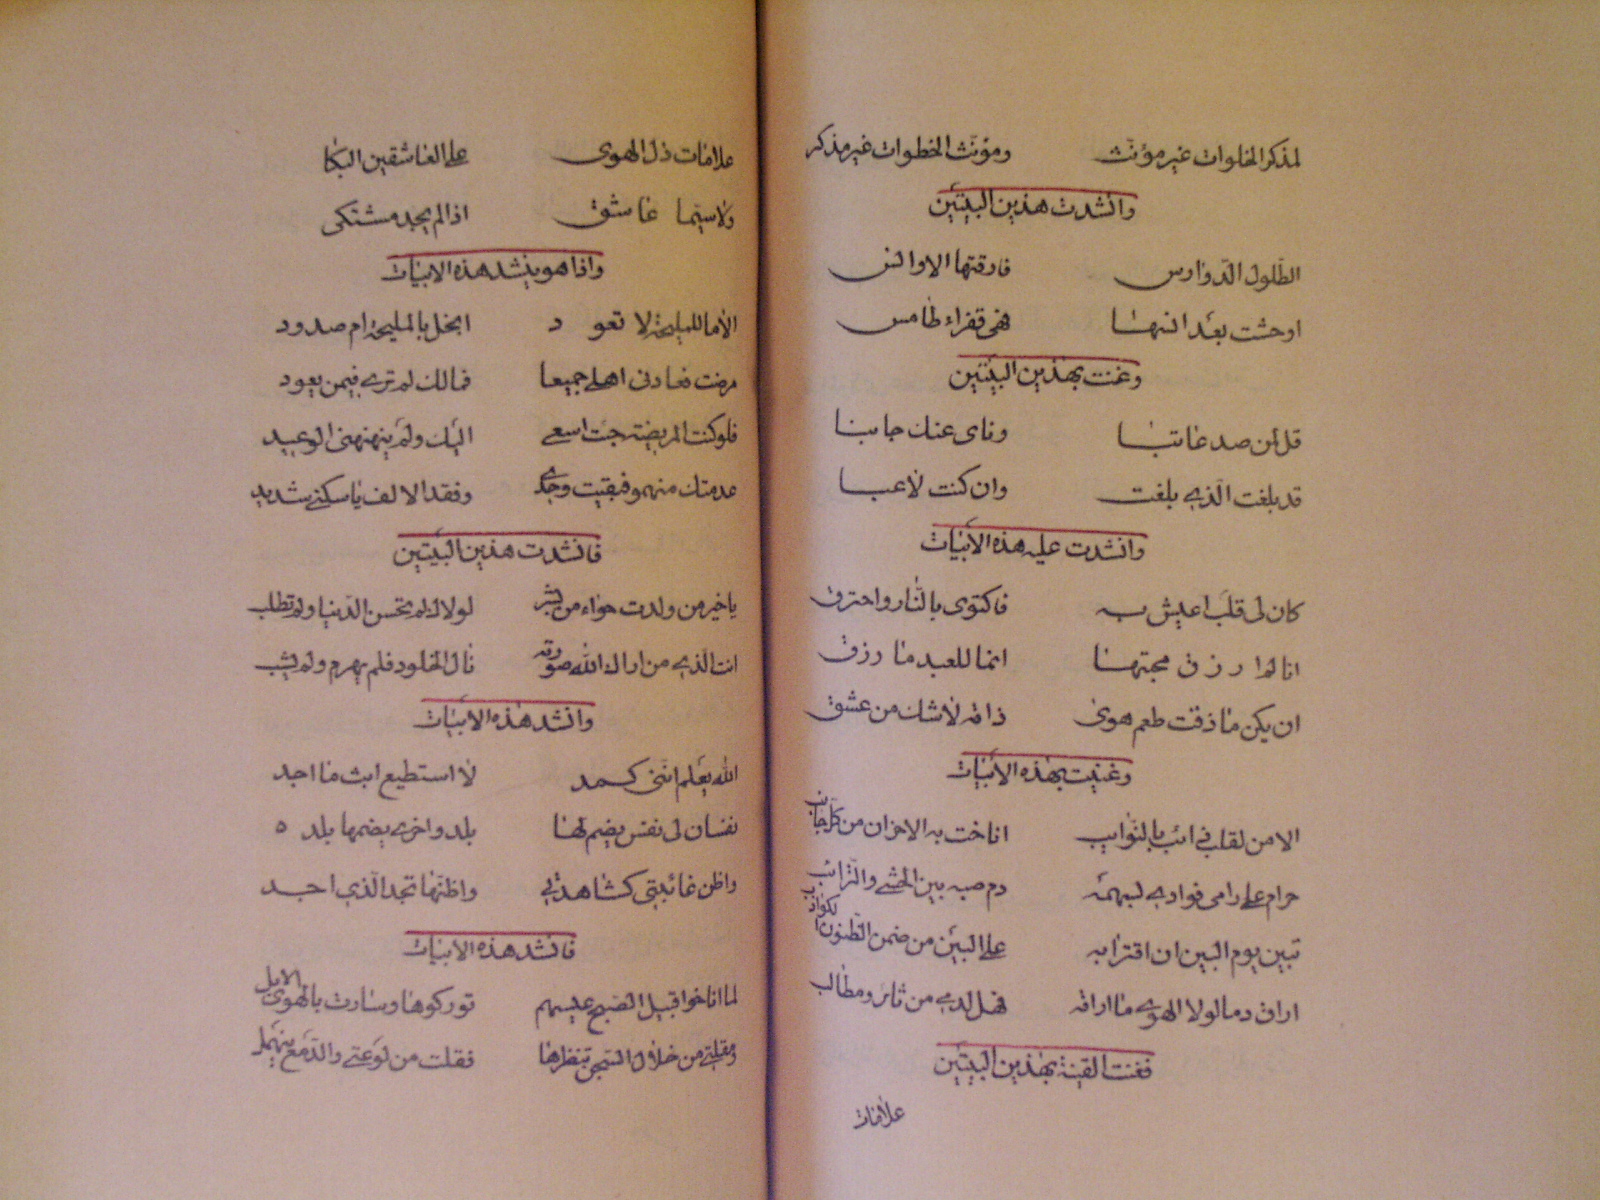 لمذكر الخلوات غير مؤنث ومؤنث الخطوات غير مذكر
وانشدت هذين البيتين
الطلول الدوارس فارقتها الاوانس
اوحشت بعد انسها فهى قفراء طامس
وغنت بهذين البيتين
قل لمن صد عاتبا وناى عنك جانبا
قد بلغت الذى بلغت وان كنت لاعبا
وانشدت عليه هذه الابيات
كان لى قلب اعيش به فاكتوى بالنار واحترق
انا لم ارزق محبتها انما للعبد ما رزق
ان يكن ما ذقت طعم هوى ذاقه لاشك من عشق
وغنيت بهذه الابيات
الا من لقلب ذائب بالنوايب اناخت به الاحزان من كل جانب
حرام على رامى فوادى بسهمه دم صبه بين الحشى والترائب
تبين يوم البين ان اقترابه على البين من ضمن الظنون الكواذب
اراق دما لولا الهوى ما اراقه فهل لدمى من ثائر ومطالب
فغنت القينة بهذين البيتين
علامات
علامات ذل الهوى على العاشقين البكا
ولا سيما عاشق اذا لم يجد مشتكى
واذا هو ينشد هذه الابيات
الا ما للمليحة لا تعود ابخل بالمليحة ام صدود
مرضت فعادنى اهلى جميعا فمالك لم ترى فيمن يعود
فلو كنت المريضة جئت اسعى اليك ولم ينهنهنى الوعيد
عدمتك منهمو فبقيت وحدى وفقد الالف يا سكنى شديد
فانشدت هذين البيتين
يا خير من ولدت حواء من بشر لولاك لم تحسن الدنيا ولم تطب
انت الذى من اراك الله صورته نال الخلود فلم يهرم ولم يشب
وانشد هذه الابيات
الله يعلم اننى كمد لا استطيع ابث ما اجد
نفسان لى نفس يضم لها بلد واخرى يضمها بلد ٥
واظن غائبتى كشاهدتى واظنها تجد الذى اجد
فانشد هذه الابيات
لما اناخوا قبيل الصبح عيسهم توركوها وسارت بالهوى الابل
ومقلتى من خلال السجن تنظرها فقلت من لوعتى والدمع ينهمل